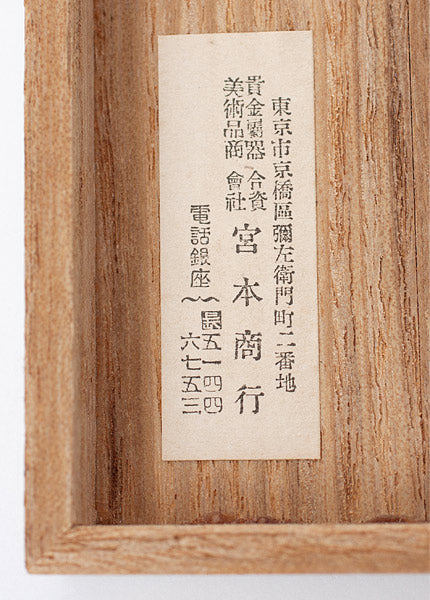 東京市京橋區彌左衛門町二番地
貴金屬器
美術品商
合資
會社
宮本商行
電話銀座
長五一四四
六七五三